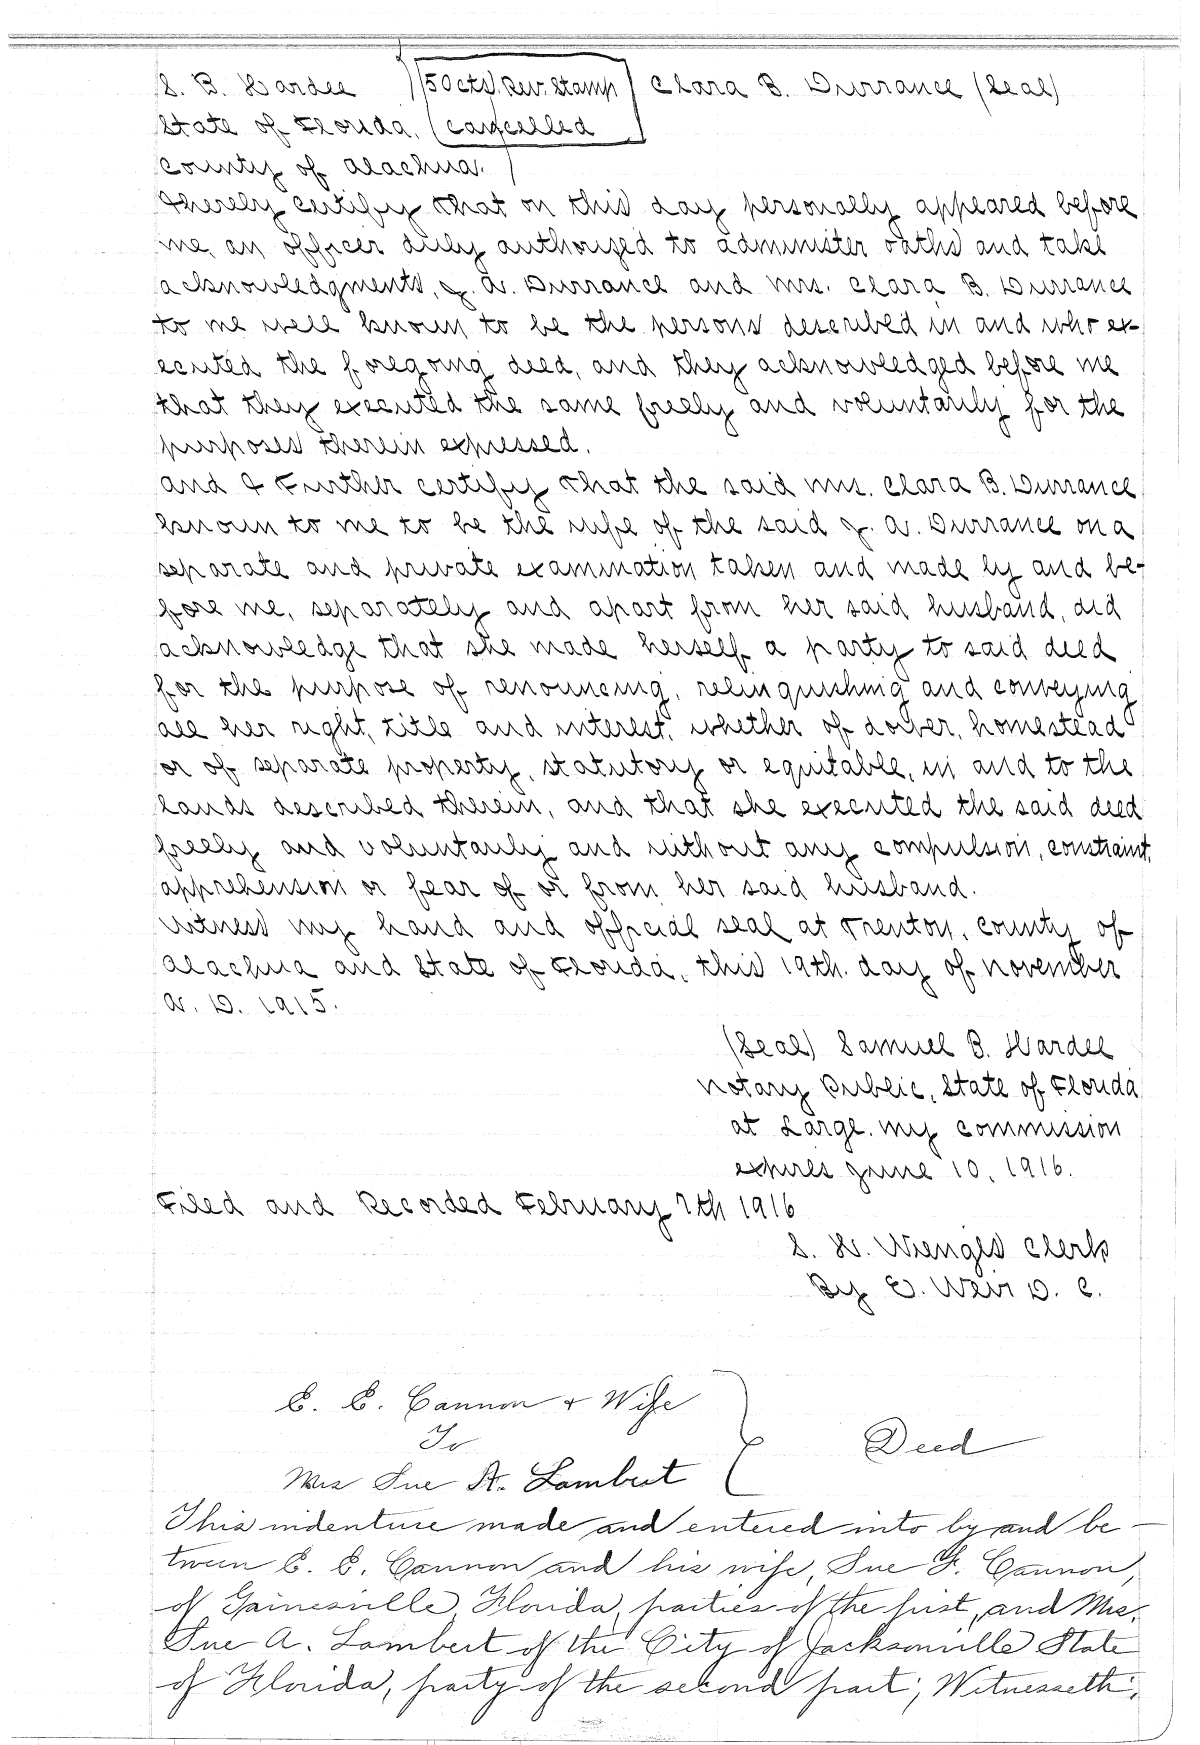 S. B. Hardee ) 50cts Rev. Stamp Clara B. Durrance (Seal)
State of Florida, ( cancelled
County of Alachua.
I hereby certify that on this day personally appeared before
me, an officer duly authorized to administer oaths and take
acknowledgments, J. A. Durrance and Mrs. Clara B. Durrance
to me well known to be the persons described in and who ex-
ecuted the foregoing deed, and they acknowledged before me
that they executed the same freely and voluntarily for the
purposes therein expressed.
And I Further certify that the said Mrs. Clara B. Durrance
known to me to be the wife of the said J. A. Durrance on a
separate and private examination taken and made by and be-
fore me, separately and apart from her said husband, did
acknowledge that she made herself a party to said deed
for the purpose of renouncing, relinquishing and conveying
all her right, title and interest, whether of dower, homestead
or of separate property, statutory or equitable, in and to the
lands described therein, and that she executed the said deed
freely and voluntarily and without any compulsion, constraint,
apprehension or fear of or from her said husband.
Witness my hand and official seal at Trenton, County of
Alachua and State of Florida, this 19th. day of November
A. D. 1915.
(Seal) Samuel B. Hardee
Notary Public, State of Florida
at Large. My commission
expires June 10, 1916.
Filed and Recorded February 7th 1916
S. H. Wienges Clerk
By E. Weir D. C.
E. E. Cannon & Wife
To
Deed
Mrs Sue A. Lambert
This indenture made and entered into by and be-
tween E. E. Cannon and his wife, Sue F. Cannon,
of Gainesville, Florida, parties of the first, and Mrs.
Sue A. Lambert of the City of Jacksonville State
of Florida, party of the second part; Witnesseth;